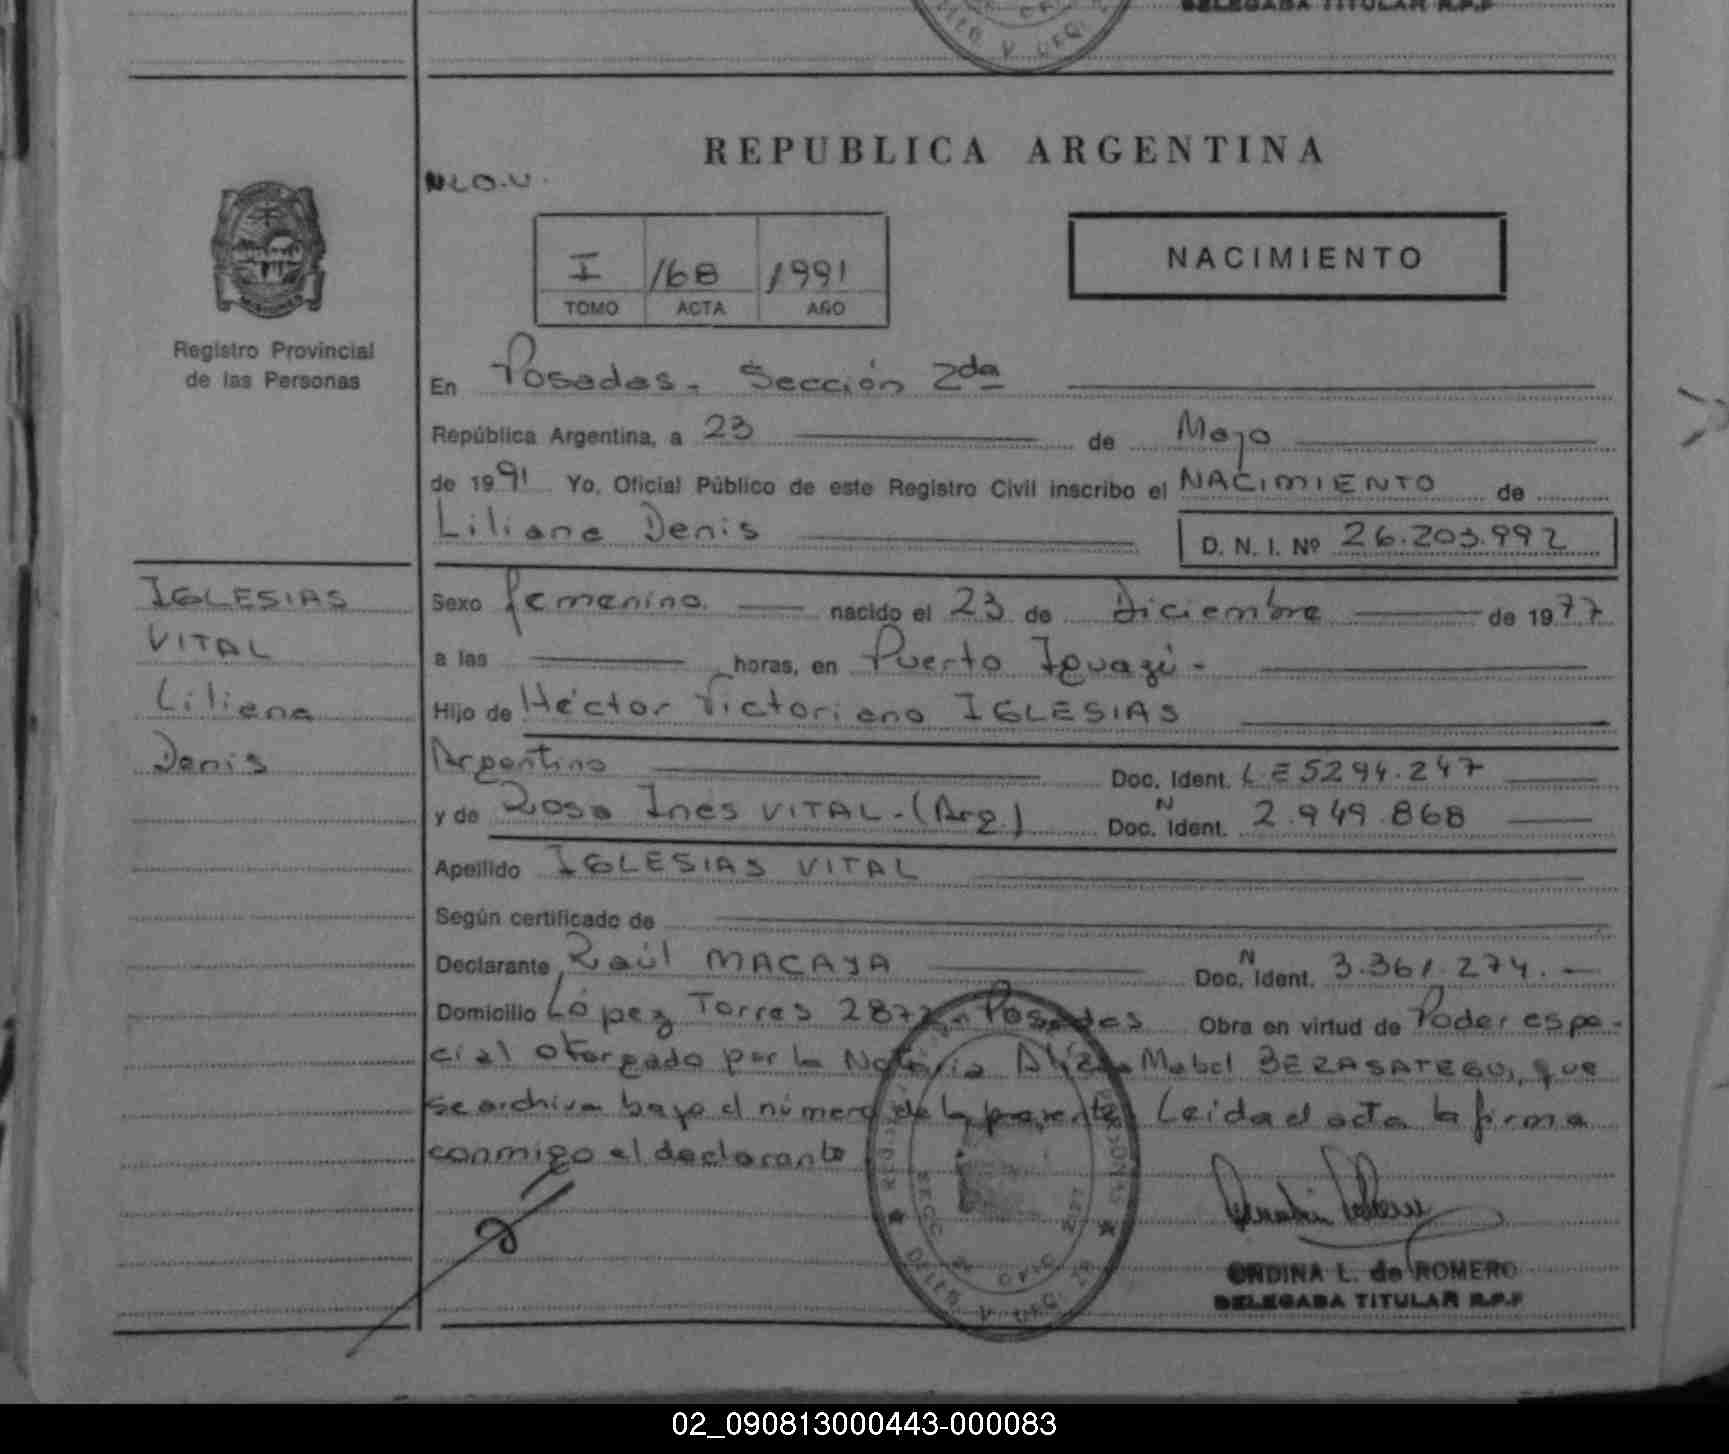 DELEGADA TITULAR R.P.P
REPUBLICA ARGENTINA
NACIMIENTO
I /68 1991
TOMO ACTA AÑO
Registro Provincial
de las Personas
En Posadas. Sección 2da
República Argentina, a 23 de Mayo
de 1991 Yo, Oficial Público de este Registro Civil inscribo el NACIMIENTO de
Liliana Denis D. N. I. Nº 26.203.992
IGLESIAS
VITAL
Liliana
Denis
Sexo femenino. nacido el 23 de Diciembre de 1977
a las horas, en Puerto Iguazú-
Hijo de Héctor Victoriano IGLESIAS
Argentino Doc. Ident. L.E 5294.247
y de Rosa Ines VITAL.-(Arg.) Doc. N Ident. 2.949.868
Apellido IGLESIAS VITAL
Según certificado de
Declarante Raúl MACAYA Doc. N Ident. 3.361.274.
Domicilio López Torres Posadas Obra en virtud de Poder espe-
cial otorgado por la Notaria Mabel BERASATEGUI, que
se archiva bajo el número de la presente. Leida el acta la firma
conmigo el declarante
ONDINA L. de ROMERO
DELEGADA TITULAR R.P.P
02_090813000443-000083